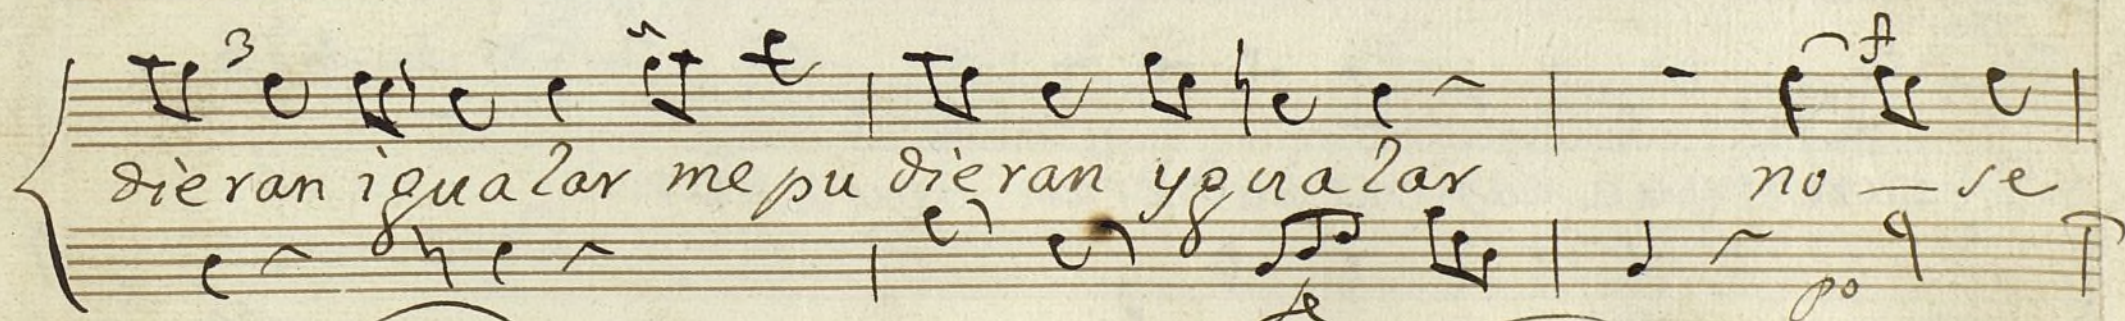 3
dieran igualar me pu dieran ygualar no — se
fe
po